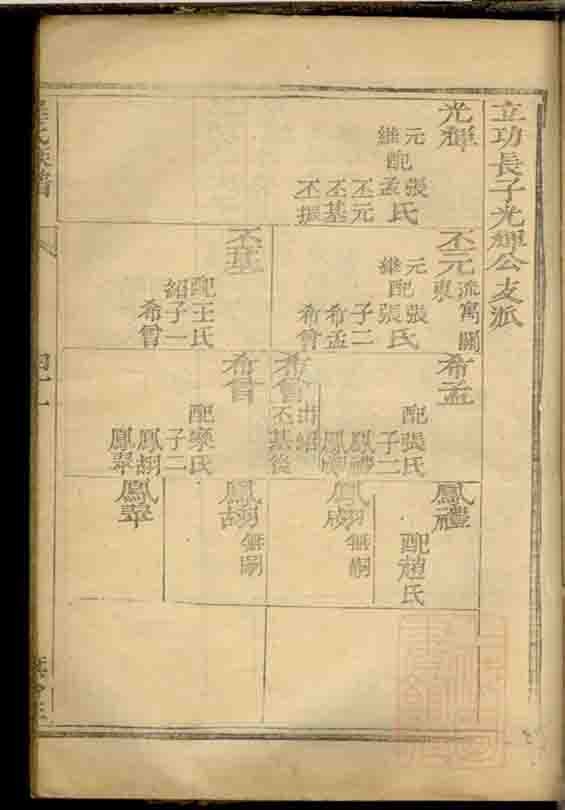 立功長子光輝公支派
光輝
元配張氏
繼配孟氏
丕元
丕基
丕振
丕元
流寓關東
元配張氏
繼配張氏
子二
希孟
希曾
丕基
配王氏
紹子一
希曾
希孟
配張氏
子二
鳳禮
希曾
出紹
丕基後
希曾
配寧氏
子二
鳳翠
鳳禮
配趙氏
無嗣
無嗣
鳳翠